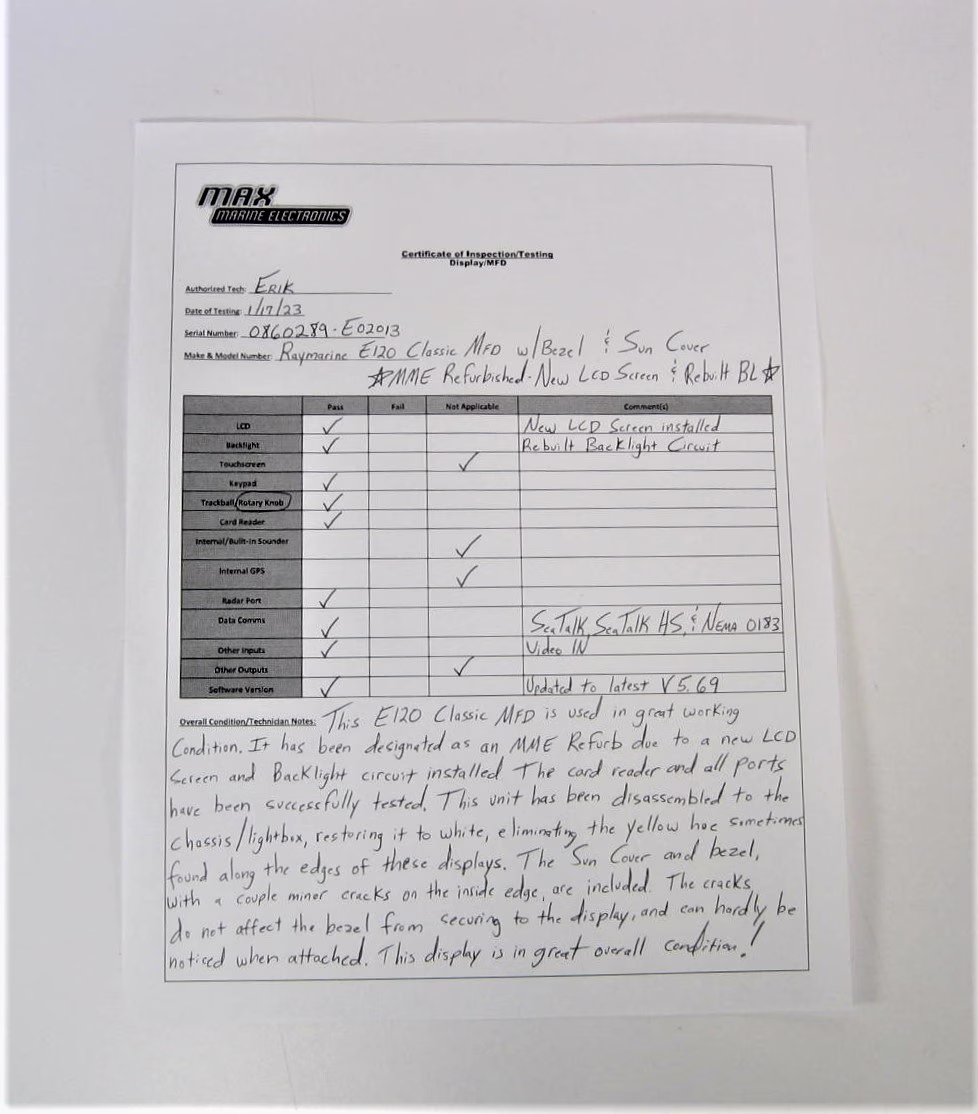 MAX
MARINE ELECTRONICS
Certificate of Inspection/Testing
Display/MFD
Authorized Tech: ERIK
Date of Testing: 1/17/23
Serial Number: 0860289-E02013
Make & Model Number: Raymarine E120 Classic MFD w/Bezel & Sun Cover
☆MME Refurbished-New LCD Screen & Rebuilt BL☆
Pass Fail Not Applicable Comment(s)
LCD ✓ New LCD Screen installed
Backlight ✓ Rebuilt Backlight Circuit
Touchscreen ✓
Keypad ✓
Trackball/Rotary Knob ✓
Card Reader ✓
Internal/Built-In Sounder ✓
Internal GPS ✓
Radar Port ✓
Data Comms ✓ SeaTalk, SeaTalk HS, & NEMA 0183
Other Inputs ✓ Video IN
Other Outputs ✓
Software Version ✓ Updated to latest V5.69
Overall Condition/Technician Notes: This E120 Classic MFD is used in great working
Condition. It has been designated as an MME Refurb due to a new LCD
Screen and Backlight circuit installed The card reader and all ports
have been successfully tested. This unit has been disassembled to the
chassis/lightbox, restoring it to white, eliminating the yellow hue sometimes
found along the edges of these displays. The Sun Cover and bezel,
with a couple minor cracks on the inside edge, are included. The cracks
do not affect the bezel from securing to the display, and can hardly be
noticed when attached. This display is in great overall condition!